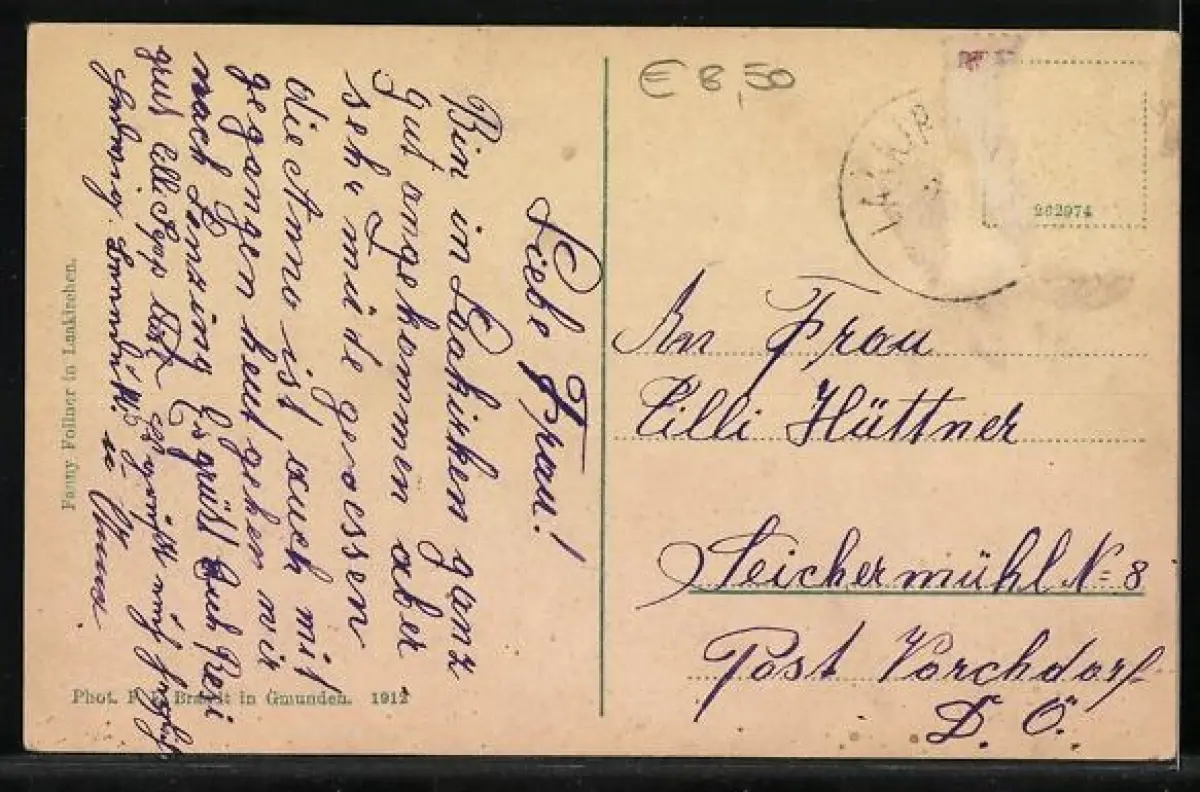 Liebe Frau!
Bin in Laakirken ganz
gut angekommen aber
sehr müde gewessen
die Anna ist auch mit
gegangen heut gehen wir
nach Lenzing Es grüßt Euch Resi
grüs Cilli Sepp
Ludwig
Fanny Follner in Laakirchen.
Phot. Brandt in Gmunden. 1912
€ 8,50
LAAKIR
262974
An Frau
Cilli Hüttner
Teichermühl N= 8
Post Vorchdorf
O. Ö.